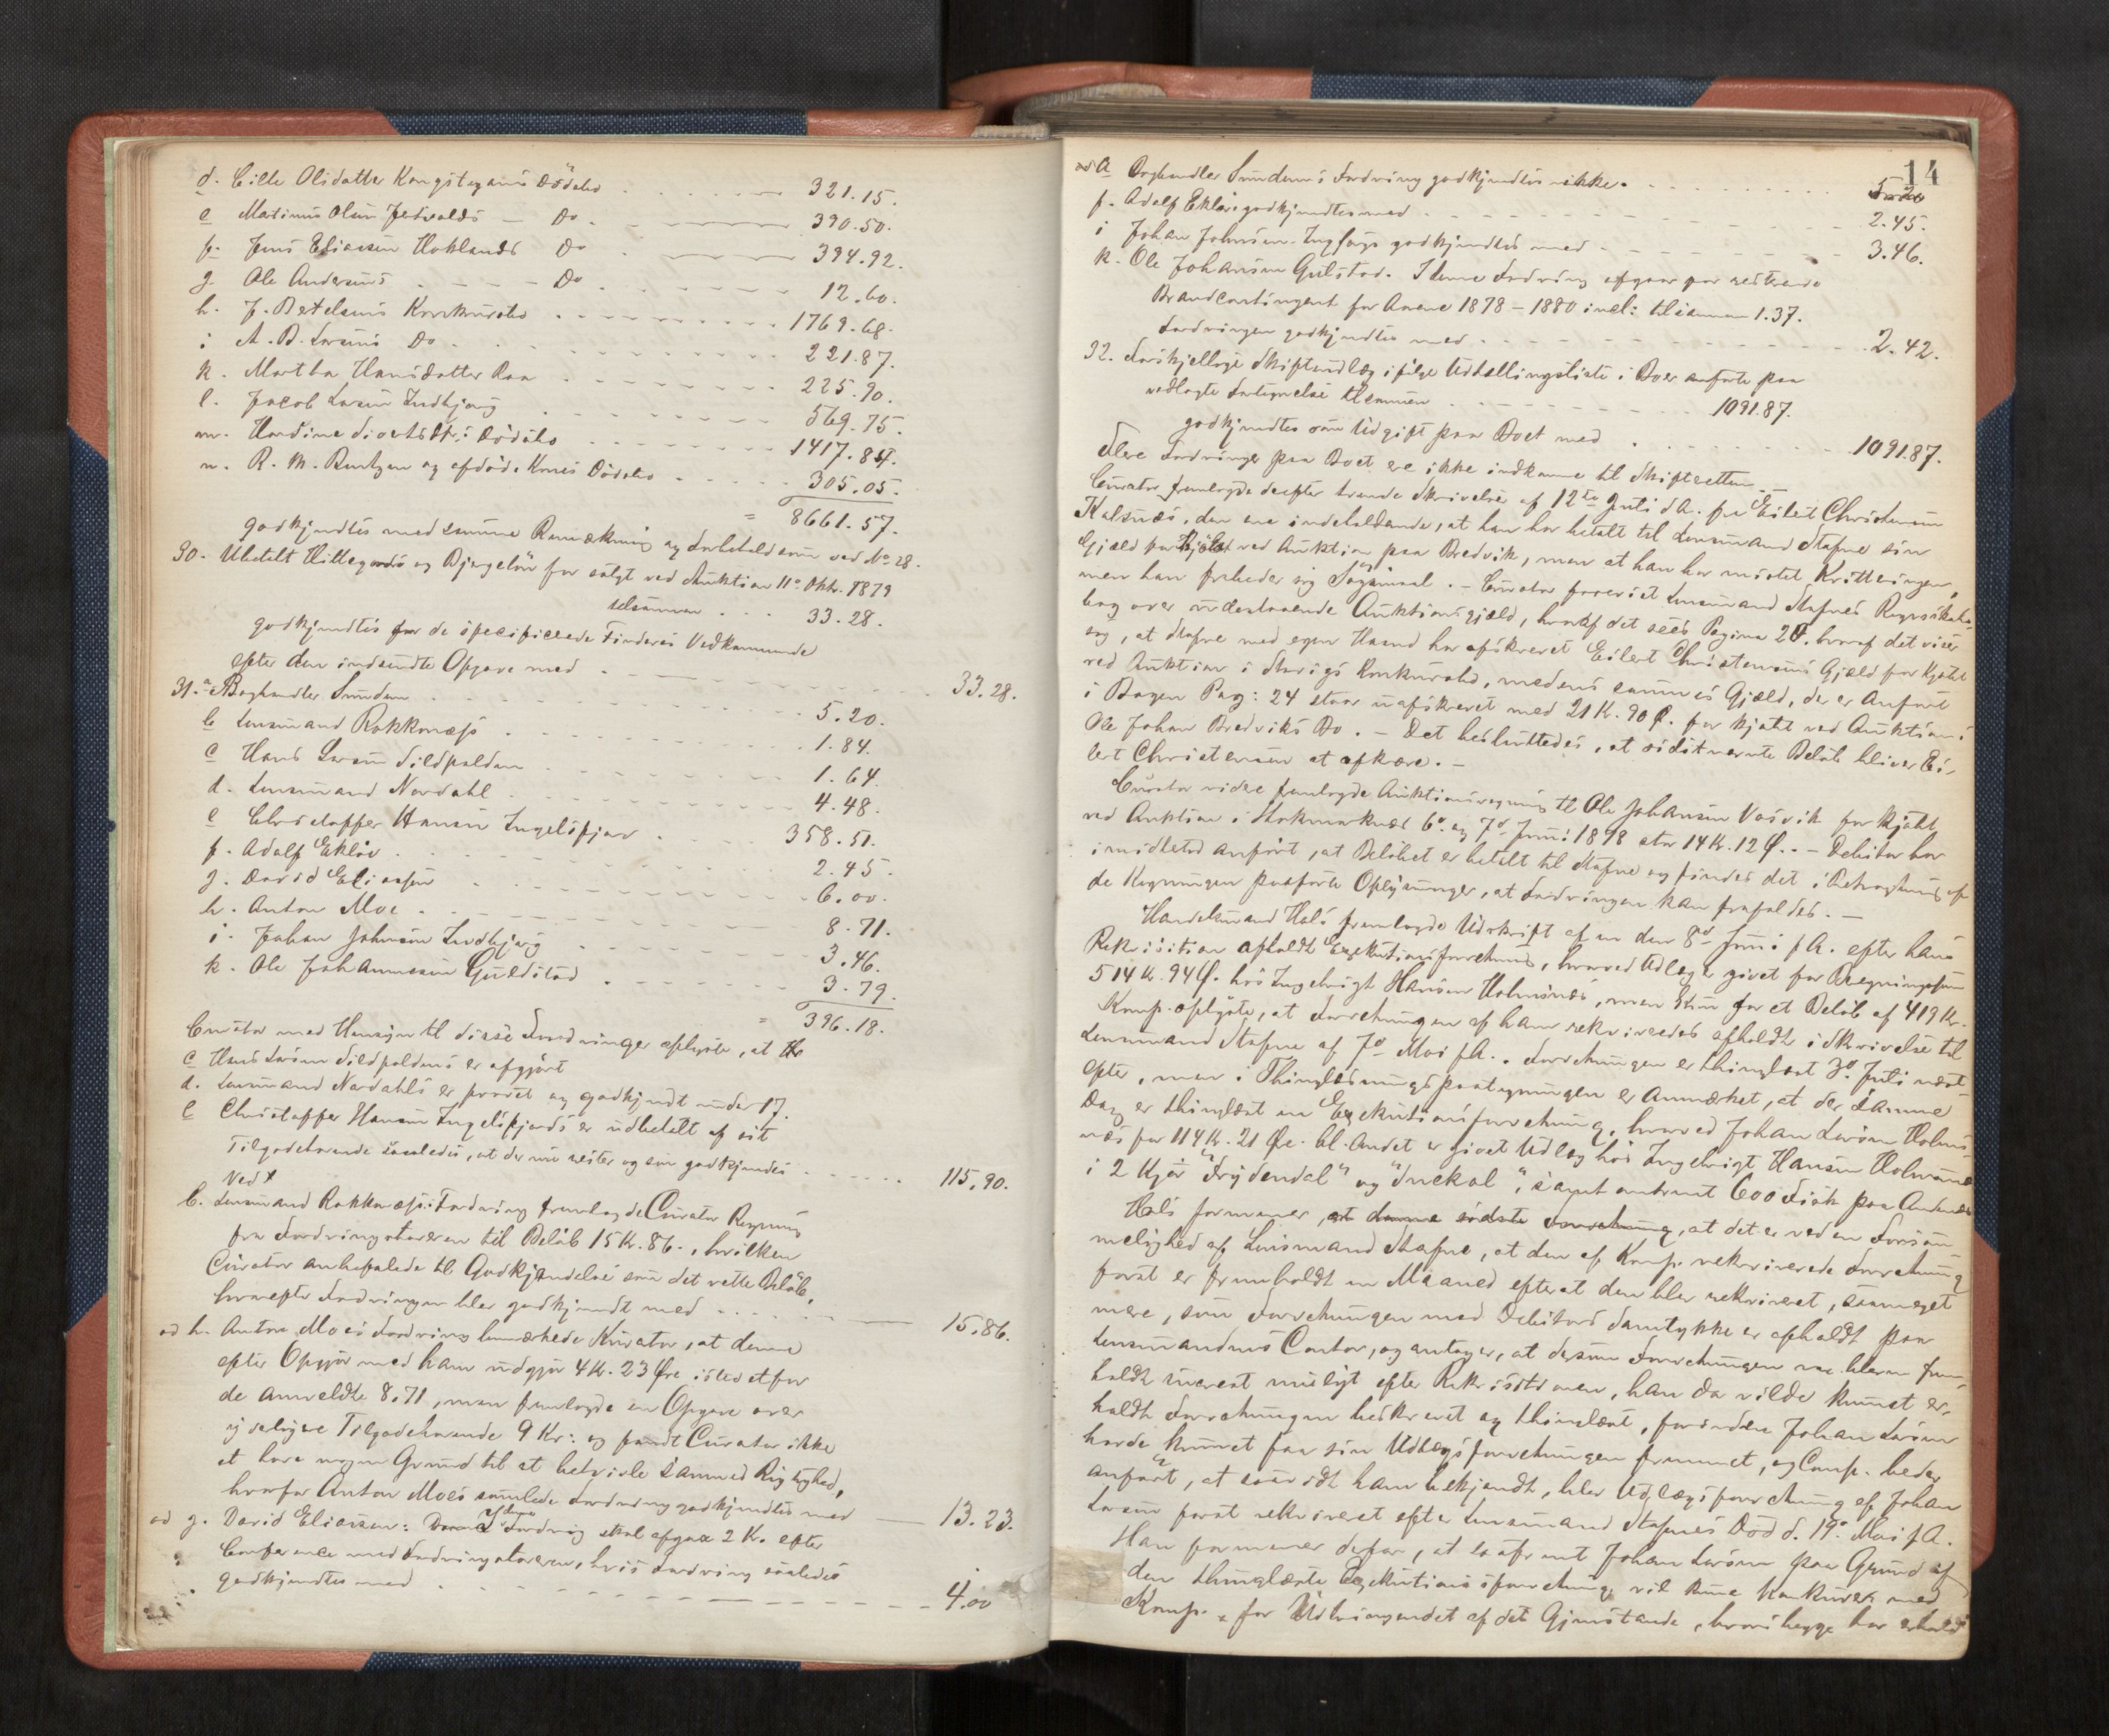 d. Cille Olsdatter Kongstegans Dödsbo 321.15.
e Martinus Olsen Do 390.50.
f. Jens Eliassen Hoklands Do 394.92.
g. Ole Andersens Do 12.60.
h. J. Bertelsens Konkursbo 1769.68.
i A. B. Larsens Do 221.87.
k. Martha Hansdatter Raa 225.90.
l. Jacob Larsen Indbjerg 569.75.
m. Hardine Sivertsdtr: Dödsbo 1417.84.
n. R. M. Bentzen og afdöde Kones Dödsbo 305.05.
= 8661.57.
godkjendtes med samme Bemærkning og Forbehold som ved No 28.
30. Ubetalt Hittegods og Bjergelön for solgt ved Auktion 11te Oktr. 1879
tilsammen 33.28.
godkjendtes for de specificerede Finderes Vedkommende
efter den indsendte Opgave med 33.28.
31. a Boghandler Sundem 5.20.
b Lensmand Rokkonæss 1.84.
c Hans Larsen Sildpolden 1.64.
d. Lensmand Nordahl 4.48.
e Christoffer Hansen Ingelsfjord 358.51.
f. Adolf Eklöv 2.45.
g. David Eliassen 6.00.
h. Anton Moe 8.71.
i. Johan Johnsen Indbjerg 3.46.
k. Ole Johannesen Guldstad 3.79.
= 396.18.
Curator med Hensyn til disse Fordringer oplyste, at
c Hans Larsen Sildpoldens er afgjort
d. Lensmand Nordahls er prövet og godkjendt under 17.
e Christoffer Hansen Ingelsfjords er udbetalt af sit
Tilgodehavende saaledes, at der nu rester og som godkjendes 115.90.
Ved
b. Lensmand Rokkonæss: Fordring fremlagde Curator Regning
fra Fordringshaveren til Belöb 15 Kr. 86., hvilken
Curator anbefalede til Godkjendelse som det rette Belöb,
hvorefter Fordringen blev godkjendt med 15.86.
ad h. Anton Moes Fordring bemærkede Kurator, at denne
efter Opgjör med ham udgjör 4 Kr. 23 Öre istedetfor
de anmeldte 8.71, men fremlagde en Opgave over
yderligere Tilgodehavende 9 Kr: og fandt Curator ikke
at have nogen Grund til at betvivle sammes Rigtighed,
hvorfor Anton Moes samlede Fordring godkjendtes med 13.23.
ad g. David Eliassen: I denne Fordring skal afgaa 2 Kr. efter
Conference med Fordringshaveren, hvis Fordring saaledes
godkjendtes med 4.00
14
ad a Boghandler Sundems Fordring godkjendtes ikke. 5.20
f. Adolf Eklövs godkjendtes med 2.45.
i Johan Johnsen godkjendtes med 3.46.
k. Ole Johansen Gulstad. I denne Fordring afgaar for resterende
Brandcontingent for Aarene 1878 - 1880 incl: tilsammen 1.37.
Fordringen godkjendtes med 2.42.
32. Forskjellige Skifteudlæg ifölge Udtællingsliste i Boer anförte paa
vedlagte Fortegnelse tilsammen 1091.87.
godkjendtes som Udgift paa Boet med 1091.87.
Flere Fordringer paa Boet ere ikke indkomne til Skifteretten.
Curator fremlagde derefter tvende Skrivelser af 12te Juli d.A. fra Eilert Christensen
Kalsnæs, den ene indeholdende, at han har betalt til Lensmand Stafne sin
Gjæld for Kjöbt ved Auktion paa Bredvik, men at han har mistet Kvitteringen,
men han frabeder sig Sögsmaal. - Curator foreviste Lensmand Stafnes Regnskabs-
bog over udestaaende Auktionsgjæld, hvoraf det sees Pagina 20. hvoraf det viser
sig, at Stafne med egen Haand har afskrevet Eilert Christensens Gjæld for Kjöbt
ved Auktion i Konkursbo, medens sammes Gjæld, der er Anfört
i Bogen Pag: 24 staar uafskrevet med 21 Kr. 90 Ö. for Kjöbt ved Auktion i
Ole Johan Bredviks Bo. - Det besluttedes, at sidstnævnte Belöb bliver Ei-
lert Christensen at afkræve. -
Curator videre fremlagde Auktionsregning til Ole Johansen Vasvik for Kjöbt
ved Auktion i Stokmarknæs 6te og 7de Juni 1878 stor 14 Kr. 12 Ö. - Debitor har
imidlertid anfört, at Belöbet er betalt til Stafne og findes det i Betragtning af
de Regningen paaförte Oplysninger, at Fordringen kan frafaldes. -
Handelsmand Hals fremlagde Udskrift af en den 8de Juni f.A. efter hans
Rekvisition afholdt Exekutionsforretning, hvorved Udlæg er givet for
514 Kr. 94 Ö. hos Ingebrigt Hansen Holmsnæs, men kun for et Belöb af 419 Kr.
Komp. oplyste, at Forretningen af ham rekvireredes afholdt i Skrivelse til
Lensmand Stafne af 7de Mai f.A. Forretningen er thinglæst 3die Juli næst-
efter, men i Thinglæsningspaategningen er anmærket, at der samme
Dag er thinglæst en Exekutionsforretning, hvorved Johan Larsen Holms-
næs for 114 Kr. 21 Öre bl. Andet er givet Udlæg hos Ingebrigt Hansen Holmsnæs
i 2 Kjör "Frydendal" og "Snekol", samt omtrent 600 Fisk paa Andenæs
Hals formener, at denne sidste Forretning, at det er ved en Forsöm-
melighed af Lensmand Stafne, at den af Komp. rekvirerede Forretning
först er fremholdt en Maaned efterat den blev rekvireret, saameget
mere, som Forretningen med Debitors Samtykke er afholdt paa
Lensmandens Contor, og antager, at dersom Forretningen var bleven frem-
holdt snarest muligt efter Rekvisitionen, han da vilde kunnet er-
holdt Forretningen beskrevet og thinglæst, forinden Johan Larsen
havde kunnet faa sin Udlægsforretningen fremmet, og Comp. beder
anfört, at saavidt ham bekjendt, blev Udlægsforretning af Johan
Larsen först rekvireret efter Lensmand Stafnes Död d. 19de Mai f.A.
Han formener derfor, at saafremt Johan Larsen paa Grund af
den thinglæste Exekutionsforretning vil kunne konkurere med
Komp. for Udbringendet af det Gjenstande, hvori begge har erholdt